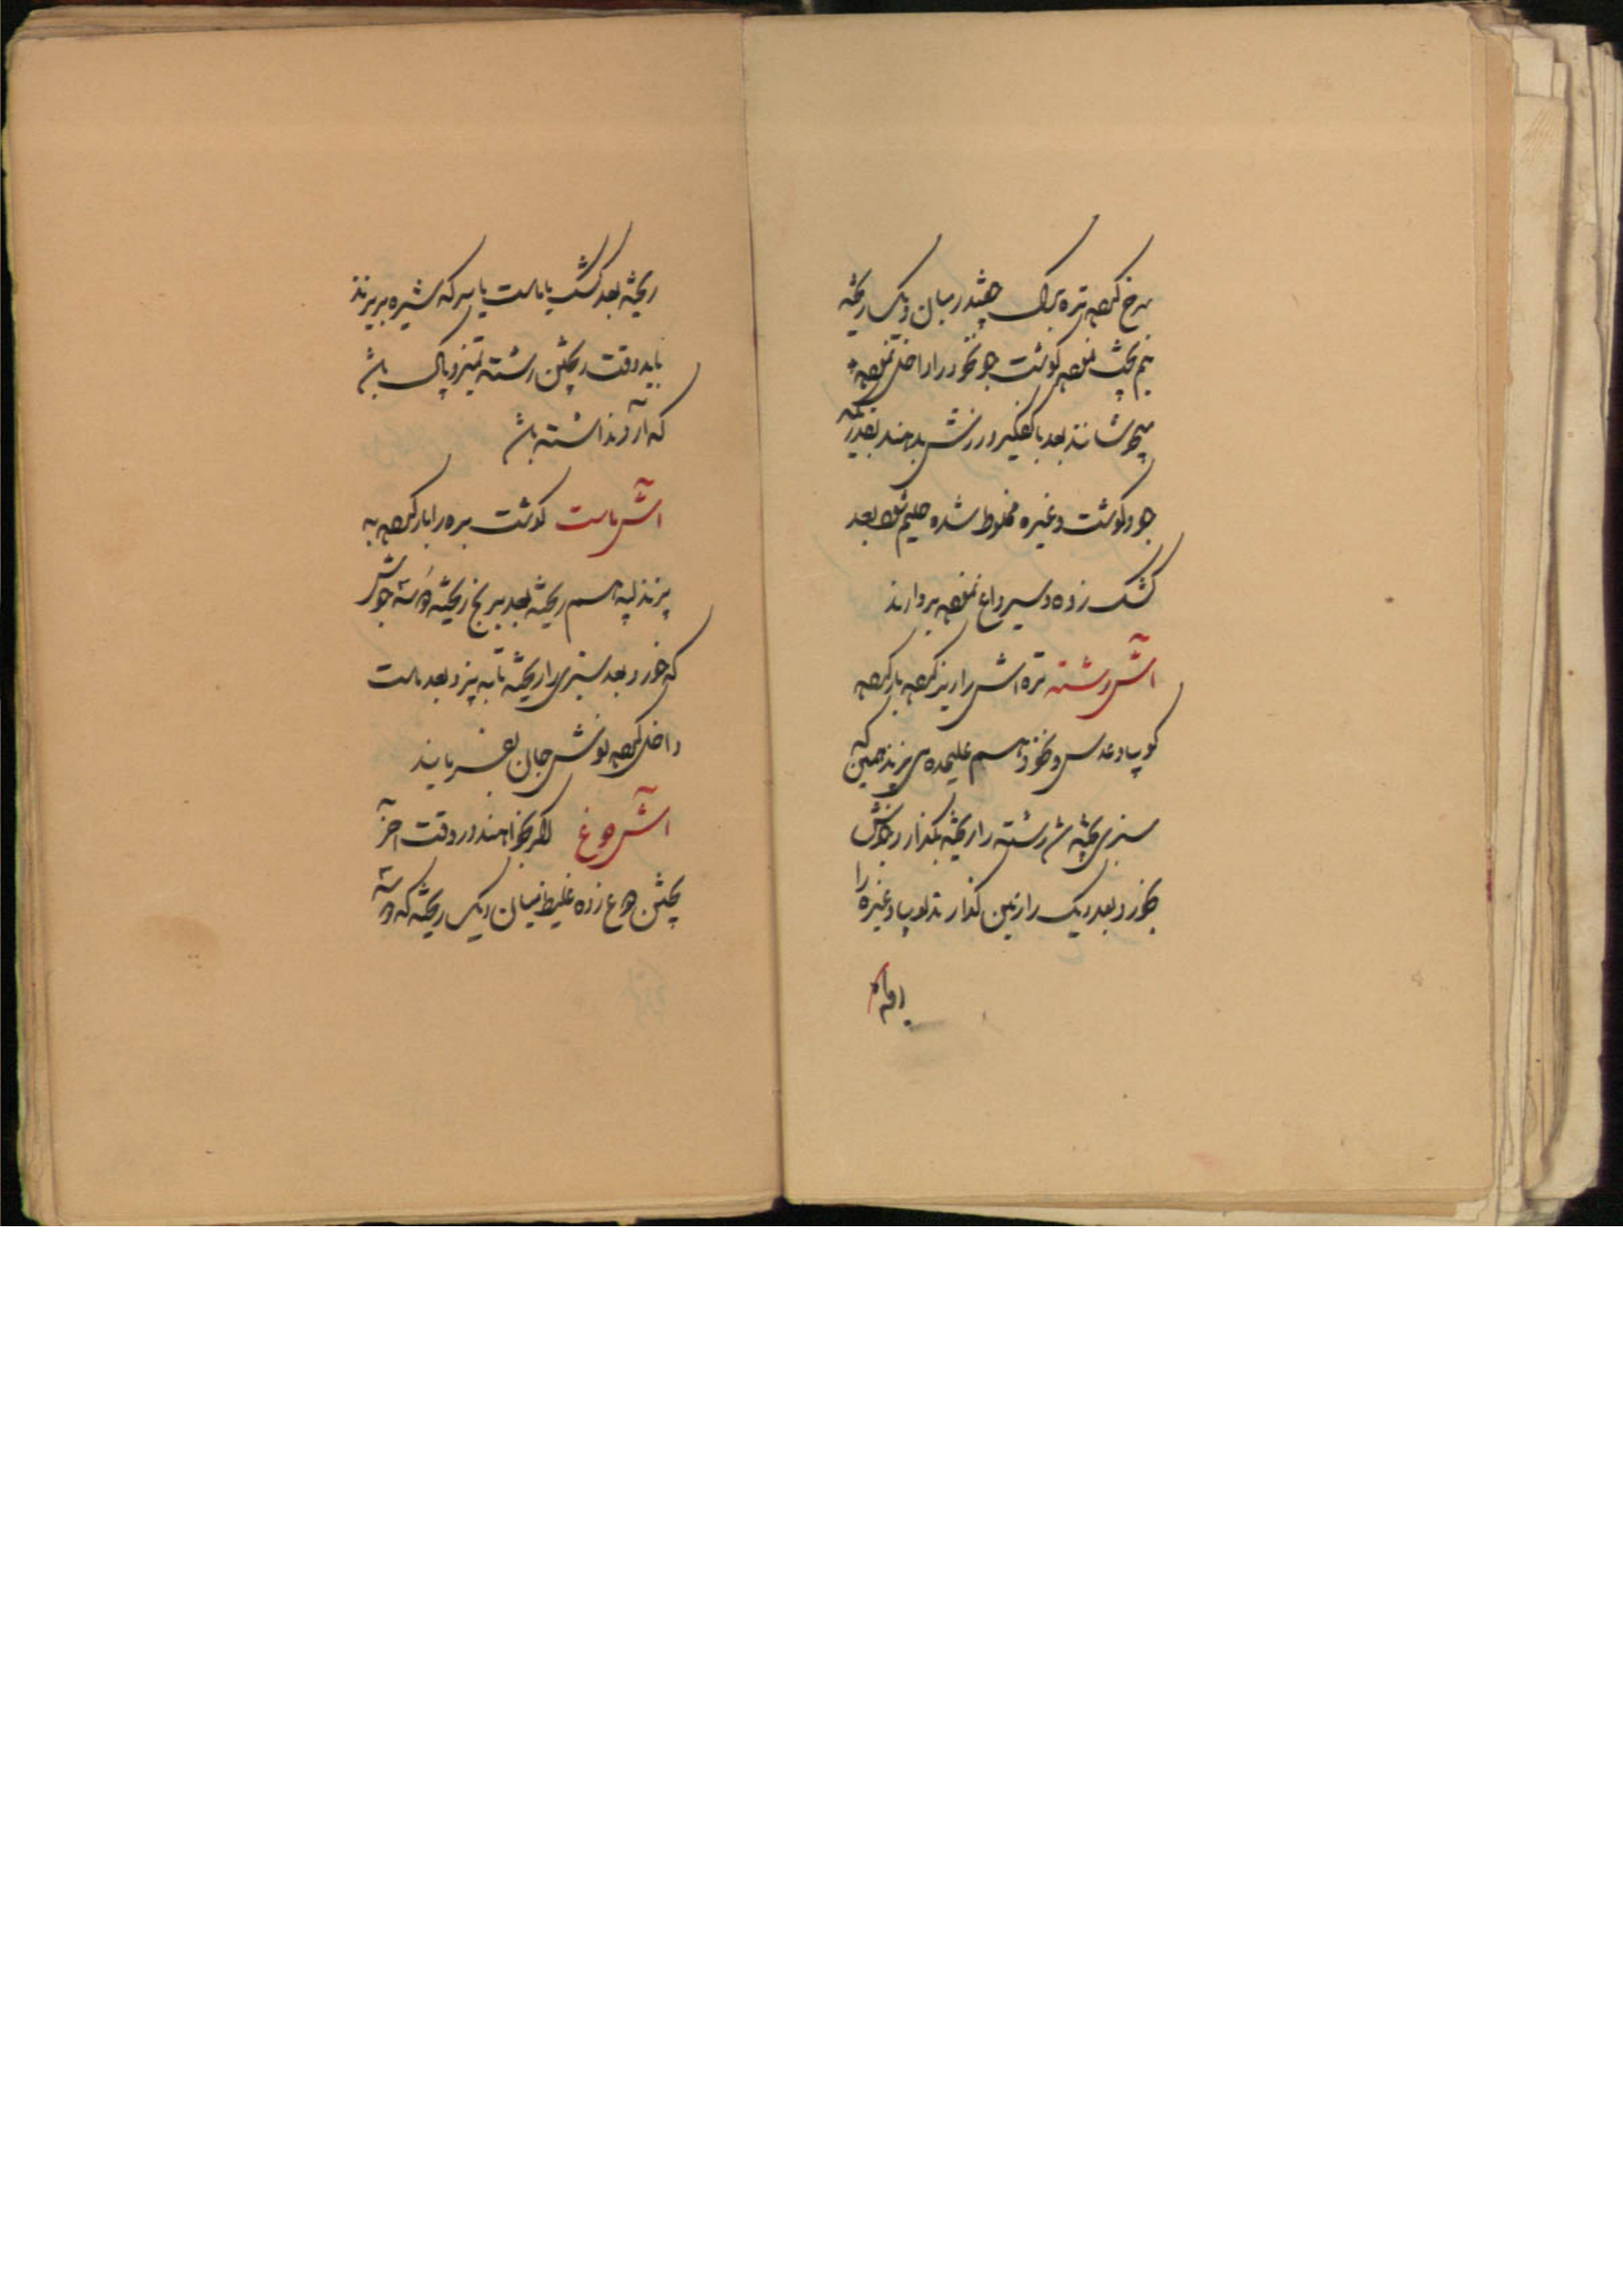 سرخ کرده تره برک چغندر میان دیک ریخته
نیم پخت نموده گوشت جو نخود را داخل نموده
میجوشانند بعد با کفگیر ورزش بدهند بقدریکه
جو و گوشت وغیره مخلوط شده حلیم شود بعد
کشک زده و سیر داغ نموده بردارند
آش رشته تره آش را ریز کرده بار کرده
لوپیا و عدس و نخود هم علیحده می پزند همین که
سبزی پخته شد رشته را ریخته بگذارد جوش
بخورد بعد دیک را زمین گذارند لوپیا وغیره را
ریخته بعد کشک یا ماست یا سرکه شیره بریزند
باید وقت ریختن رشته تمیز و پاک باشد
که آرد نداشته باشد
آش ماست گوشت بره را بار کرده به
پزند لپه هم ریخته بعد برنج ریخته دو سه جوش
که خورد بعد سبزی را ریخته تا به پزد بعد ماست
داخل کرده نوش جان بفرمایند
آش دوغ اگر بخواهند در وقت آخر
پختن دوغ زده غلیظ میان دیک ریخته که دو سه